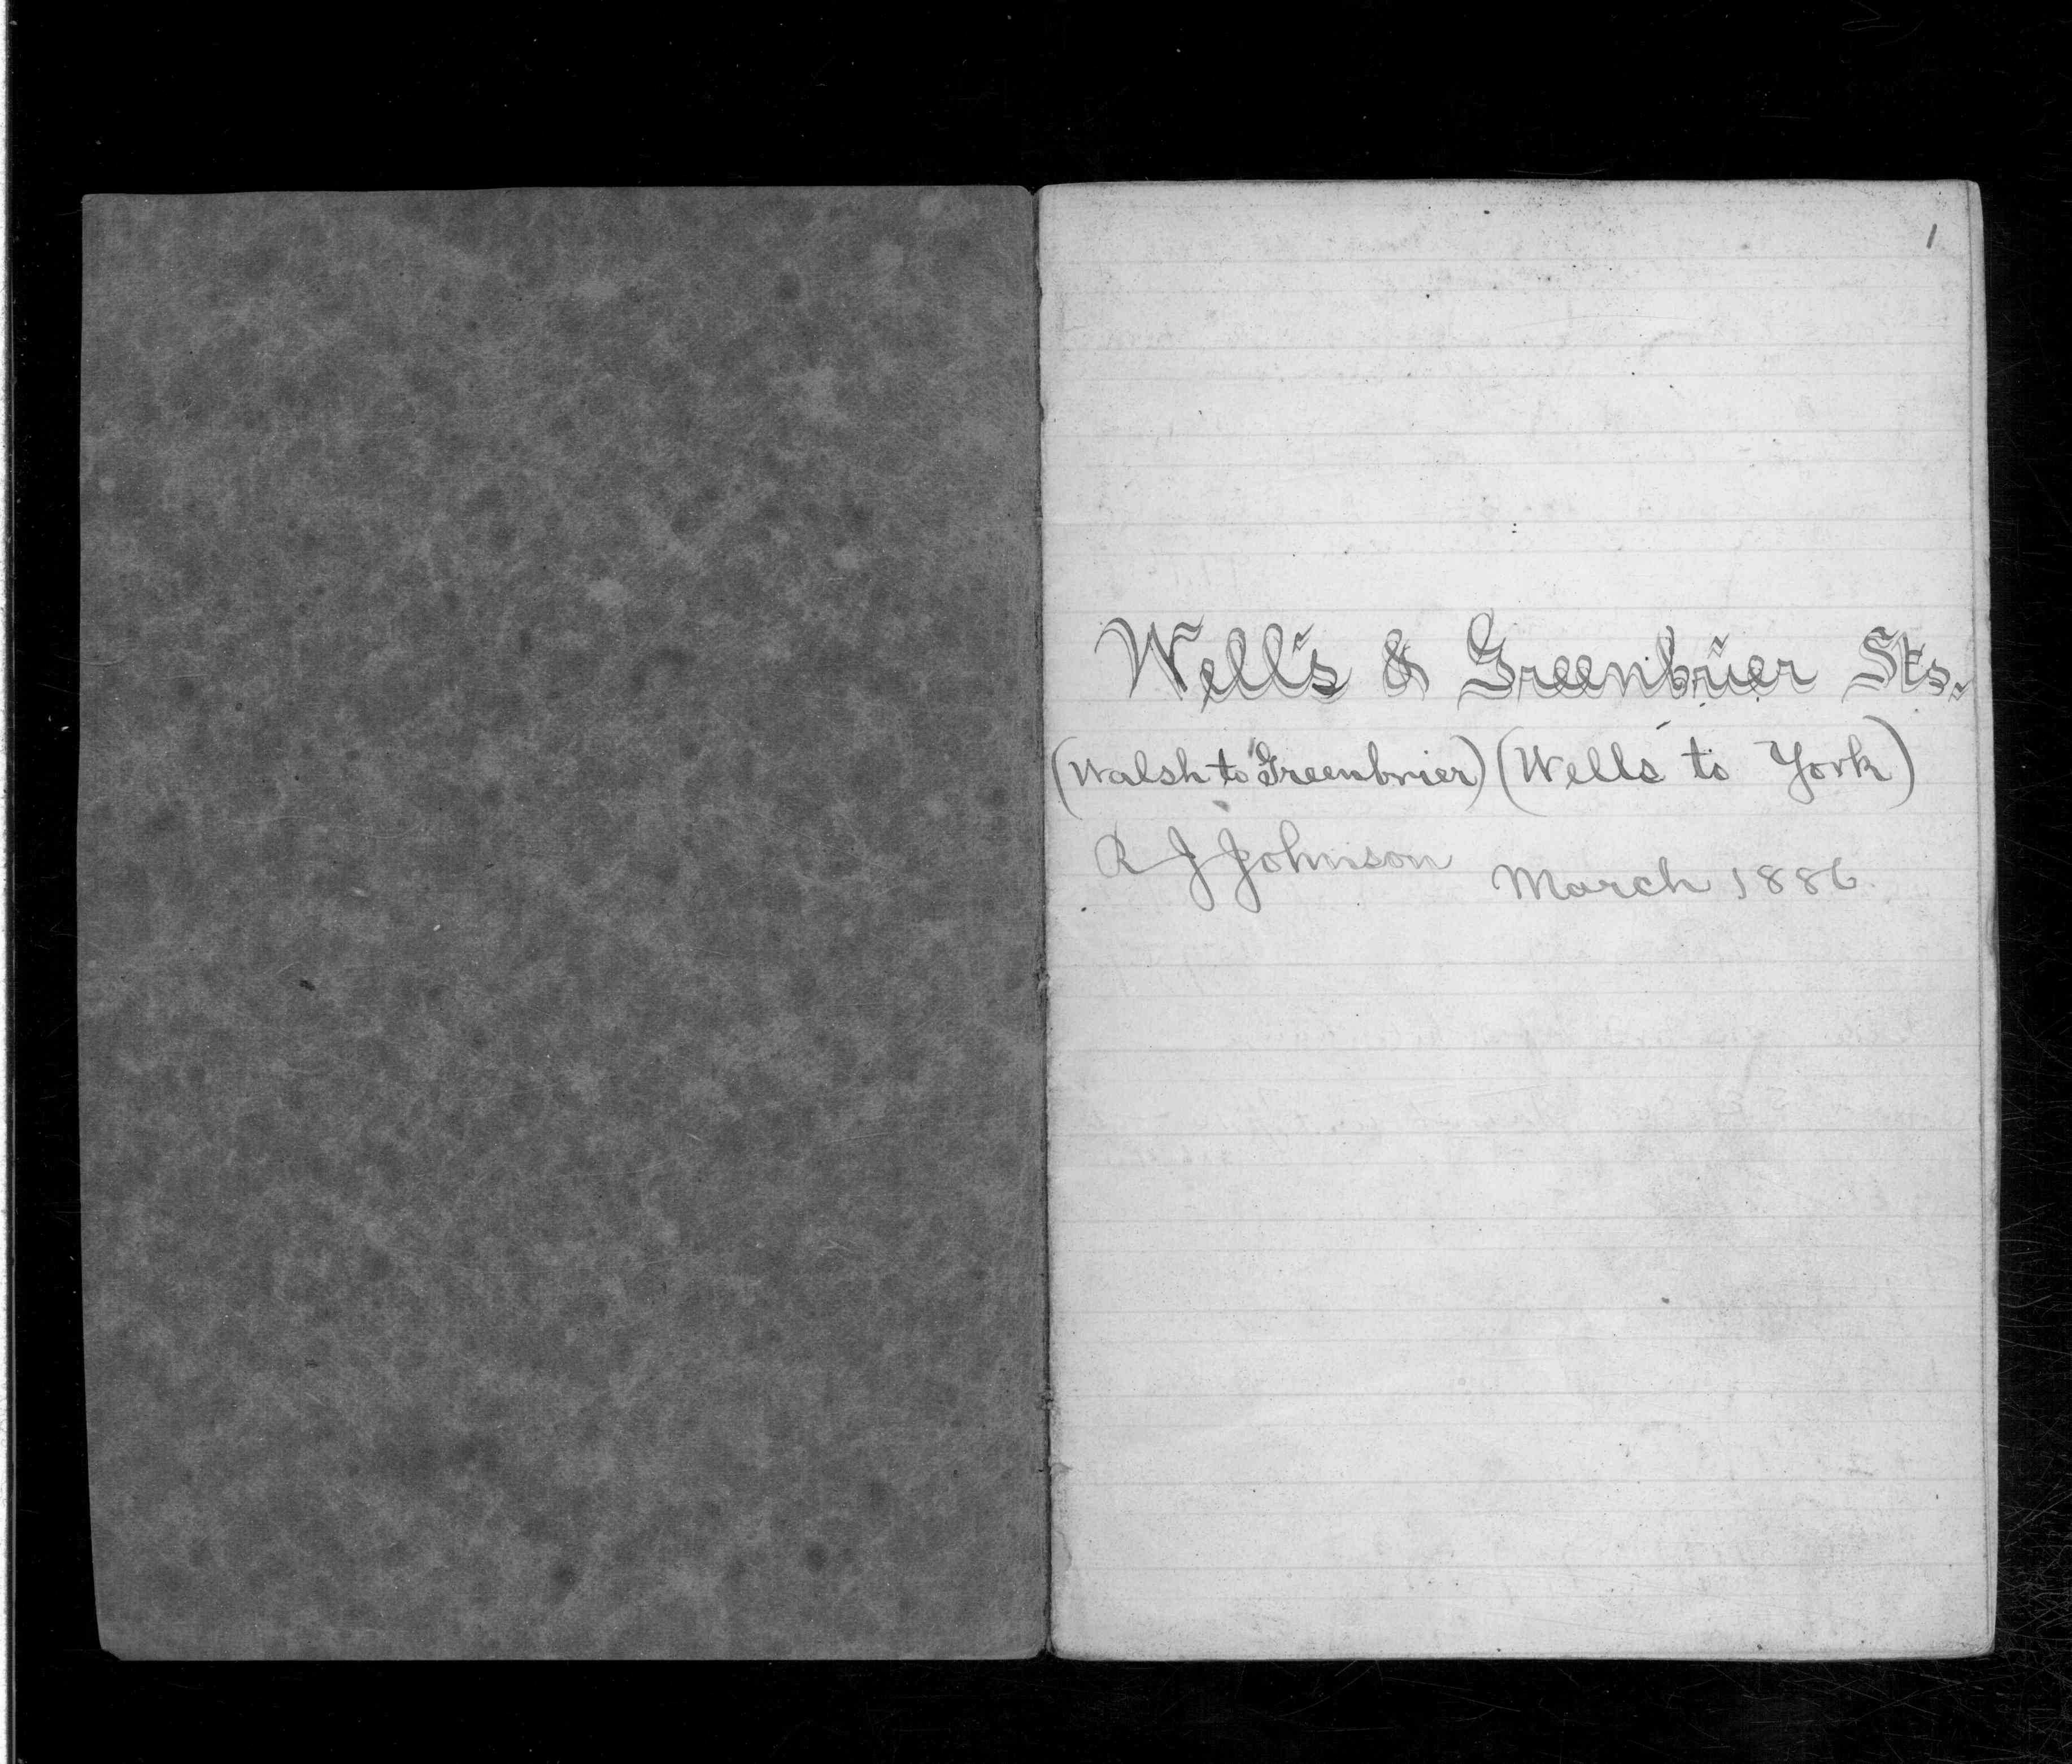 1
Wells & Greenbrier Sts.
(Walsh to Greenbrier) (Wells to York)
R J Johnson March 1886